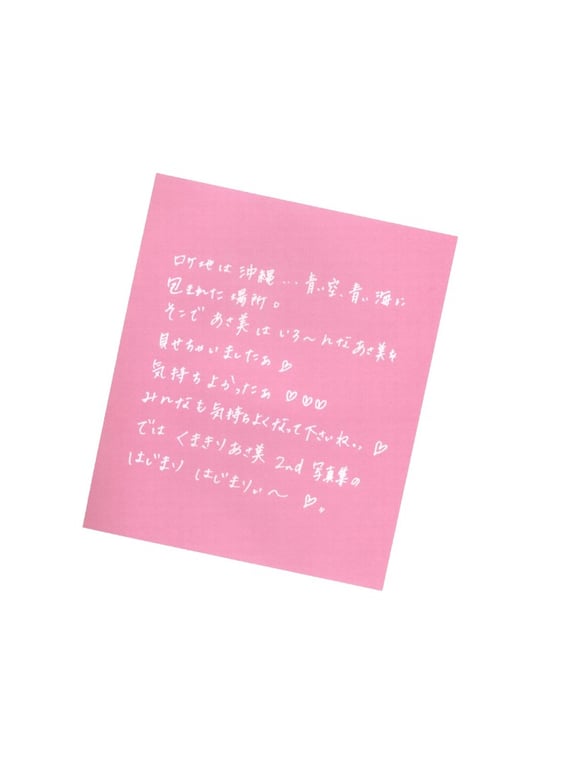 ロケ地は沖縄...青い空、青い海に
包まれた場所。
そこであさ美はいろ〜んなあさ美を
見せちゃいましたぁ♡
気持ちよかったぁ♡♡♡
みんなも気持ちよくなって下さいね。。♡
ではくまきりあさ美 2nd 写真集の
はじまりはじまりぃ〜♡。